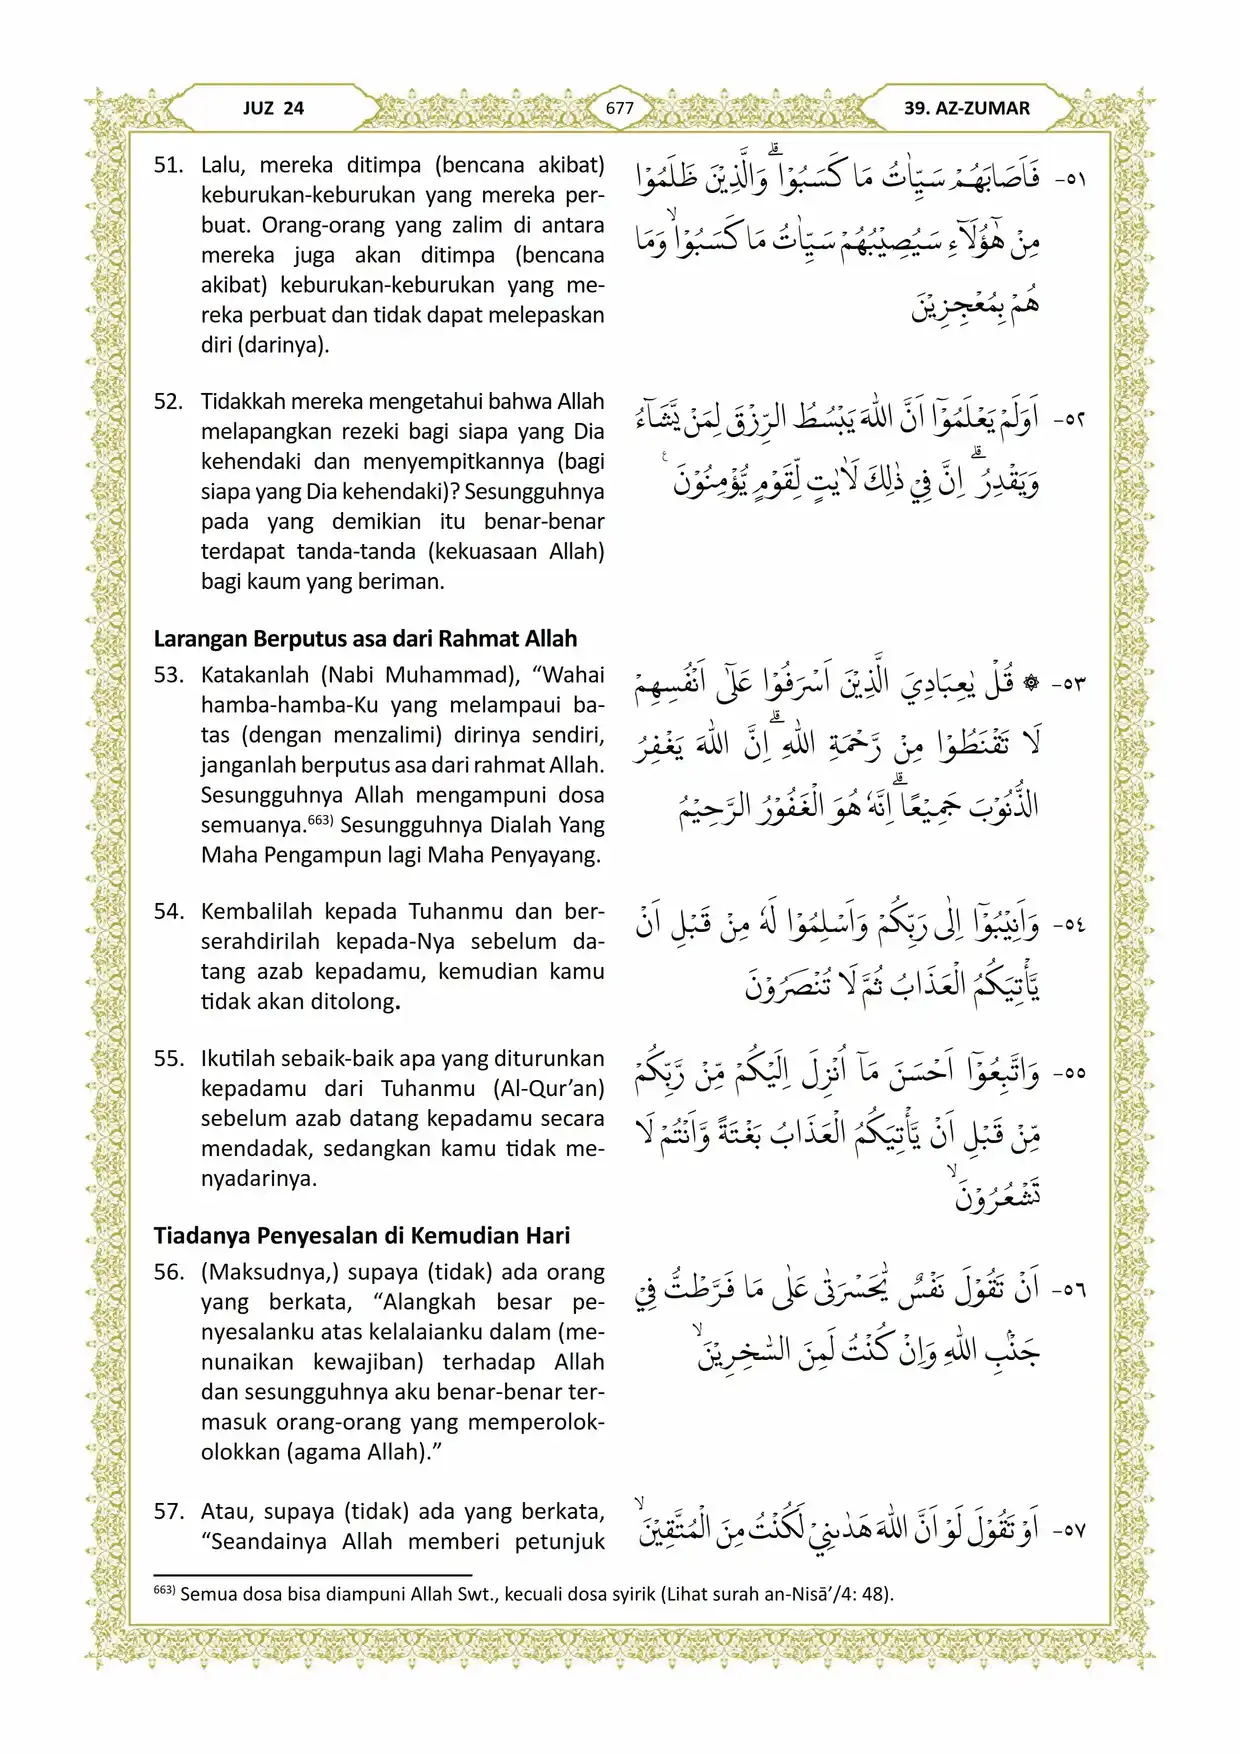 JUZ 24
677
39. AZ-ZUMAR
51. Lalu, mereka ditimpa (bencana akibat)
keburukan-keburukan yang mereka per-
buat. Orang-orang yang zalim di antara
mereka juga akan ditimpa (bencana
akibat) keburukan-keburukan yang me-
reka perbuat dan tidak dapat melepaskan
diri (darinya).
٥١- فَاَصَابَهُمْ سَيِّاٰتُ مَا كَسَبُوْا ۗوَالَّذِيْنَ ظَلَمُوْا
مِنْ هٰٓؤُلَاۤءِ سَيُصِيْبُهُمْ سَيِّاٰتُ مَا كَسَبُوْا ۙوَمَا
هُمْ بِمُعْجِزِيْنَ
52. Tidakkah mereka mengetahui bahwa Allah
melapangkan rezeki bagi siapa yang Dia
kehendaki dan menyempitkannya (bagi
siapa yang Dia kehendaki)? Sesungguhnya
pada yang demikian itu benar-benar
terdapat tanda-tanda (kekuasaan Allah)
bagi kaum yang beriman.
٥٢- اَوَلَمْ يَعْلَمُوْٓا اَنَّ اللّٰهَ يَبْسُطُ الرِّزْقَ لِمَنْ يَّشَاۤءُ
وَيَقْدِرُ ۗاِنَّ فِيْ ذٰلِكَ لَاٰيٰتٍ لِّقَوْمٍ يُّؤْمِنُوْنَ ࣖ
Larangan Berputus asa dari Rahmat Allah
53. Katakanlah (Nabi Muhammad), “Wahai
hamba-hamba-Ku yang melampaui ba-
tas (dengan menzalimi) dirinya sendiri,
janganlah berputus asa dari rahmat Allah.
Sesungguhnya Allah mengampuni dosa
semuanya.⁶⁶³⁾ Sesungguhnya Dialah Yang
Maha Pengampun lagi Maha Penyayang.
٥٣- ۞ قُلْ يٰعِبَادِيَ الَّذِيْنَ اَسْرَفُوْا عَلٰٓى اَنْفُسِهِمْ
لَا تَقْنَطُوْا مِنْ رَّحْمَةِ اللّٰهِ ۗاِنَّ اللّٰهَ يَغْفِرُ
الذُّنُوْبَ جَمِيْعًا ۗاِنَّهٗ هُوَ الْغَفُوْرُ الرَّحِيْمُ
54. Kembalilah kepada Tuhanmu dan ber-
serahdirilah kepada-Nya sebelum da-
tang azab kepadamu, kemudian kamu
tidak akan ditolong.
٥٤- وَاَنِيْبُوْٓا اِلٰى رَبِّكُمْ وَاَسْلِمُوْا لَهٗ مِنْ قَبْلِ اَنْ
يَّأْتِيَكُمُ الْعَذَابُ ثُمَّ لَا تُنْصَرُوْنَ
55. Ikutilah sebaik-baik apa yang diturunkan
kepadamu dari Tuhanmu (Al-Qur’an)
sebelum azab datang kepadamu secara
mendadak, sedangkan kamu tidak me-
nyadarinya.
٥٥- وَاتَّبِعُوْٓا اَحْسَنَ مَآ اُنْزِلَ اِلَيْكُمْ مِّنْ رَّبِّكُمْ
مِّنْ قَبْلِ اَنْ يَّأْتِيَكُمُ الْعَذَابُ بَغْتَةً وَّاَنْتُمْ لَا
تَشْعُرُوْنَ ۙ
Tiadanya Penyesalan di Kemudian Hari
56. (Maksudnya,) supaya (tidak) ada orang
yang berkata, “Alangkah besar pe-
nyesalanku atas kelalaianku dalam (me-
nunaikan kewajiban) terhadap Allah
dan sesungguhnya aku benar-benar ter-
masuk orang-orang yang memperolok-
olokkan (agama Allah).”
٥٦- اَنْ تَقُوْلَ نَفْسٌ يّٰحَسْرَتٰى عَلٰى مَا فَرَّطْتُّ فِيْ
جَنْۢبِ اللّٰهِ وَاِنْ كُنْتُ لَمِنَ السّٰخِرِيْنَ ۙ
57. Atau, supaya (tidak) ada yang berkata,
“Seandainya Allah memberi petunjuk
٥٧- اَوْ تَقُوْلَ لَوْ اَنَّ اللّٰهَ هَدٰىنِيْ لَكُنْتُ مِنَ الْمُتَّقِيْنَ ۙ
⁶⁶³⁾ Semua dosa bisa diampuni Allah Swt., kecuali dosa syirik (Lihat surah an-Nisā’/4: 48).